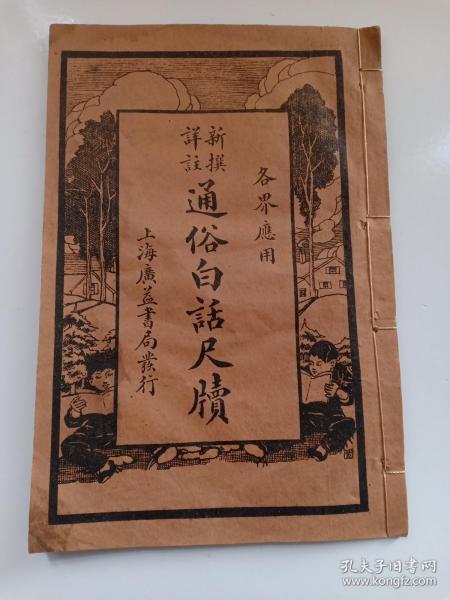 各界應用
新撰
詳註
通俗白話尺牘
上海廣益書局發行
孔夫子旧书网
www.kongfz.com